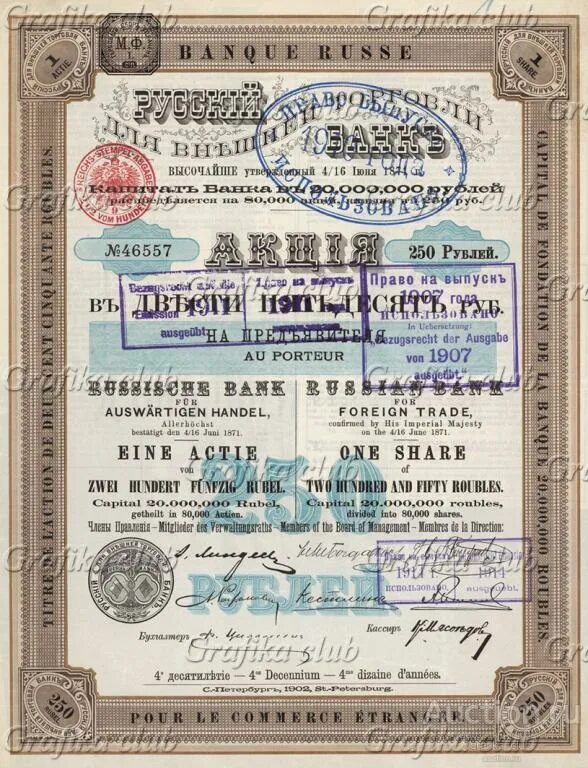 BANQUE RUSSE
М.Ф.
1
АКТІЕ
1
SHARE
РУССКІЙ
ДЛЯ ВНѢШНЕЙ ТОРГОВЛИ
БАНКЪ
ВЫСОЧАЙШЕ утвержденный 4/16 Іюня 1871 г.
Капиталъ Банка въ 20,000,000 рублей
распредѣляется на 80,000 акцій, каждая въ 250 руб.
REICHS-STEMPEL-ABGABE
VOM HUNDERT
ПРАВО ВЫПУСКА
И ПОЛЬЗОВАНО
№46557
АКЦІЯ
250 Рублей.
ВЪ ДВѢСТИ ПЯТЬДЕСЯТЬ РУБ.
НА ПРЕДЪЯВИТЕЛЯ
AU PORTEUR
Bezugsrecht auf die
Emission 1911
ausgeübt.
Право на выпускъ
1911
Право на выпускъ
1907 года
ИСПОЛЬЗОВАНО
In Uebersetzung:
Bezugsrecht der Ausgabe
von 1907
ausgeübt.
RUSSISCHE BANK
FÜR
AUSWÄRTIGEN HANDEL,
Allerhöchst
bestätigt den 4/16 Juni 1871.
EINE ACTIE
von
ZWEI HUNDERT FÜNFZIG RUBEL.
Capital 20.000,000 Rubel,
getheilt in 80,000 Actien.
RUSSIAN BANK
FOR
FOREIGN TRADE,
confirmed by His Imperial Majesty
on the 4/16 June 1871.
ONE SHARE
of
TWO HUNDRED AND FIFTY ROUBLES.
Capital 20.000,000 roubles,
divided into 80,000 shares.
250
РУБЛЕЙ
Члены Правленія - Mitglieder des Verwaltungsraths - Members of the Board of Management - Membres de la Direction:
1914
1914
использовано.
ausgeübt.
РУССКІЙ ДЛЯ ВНѢШНЕЙ ТОРГОВЛИ БАНКЪ
Бухгалтеръ
Кассиръ
4е десятилѣтіе — 4es Decennium — 4me dizaine d'années.
С.-Петербургъ, 1902, St.-Petersburg.
TITRE DE L'ACTION DE DEUX CENT CINQUANTE ROUBLES.
CAPITAL DE FONDATION DE LA BANQUE 20.000,000 ROUBLES.
250
250
POUR LE COMMERCE ÉTRANGÈRE.
Grafika club
Auction.ru
auction.ru